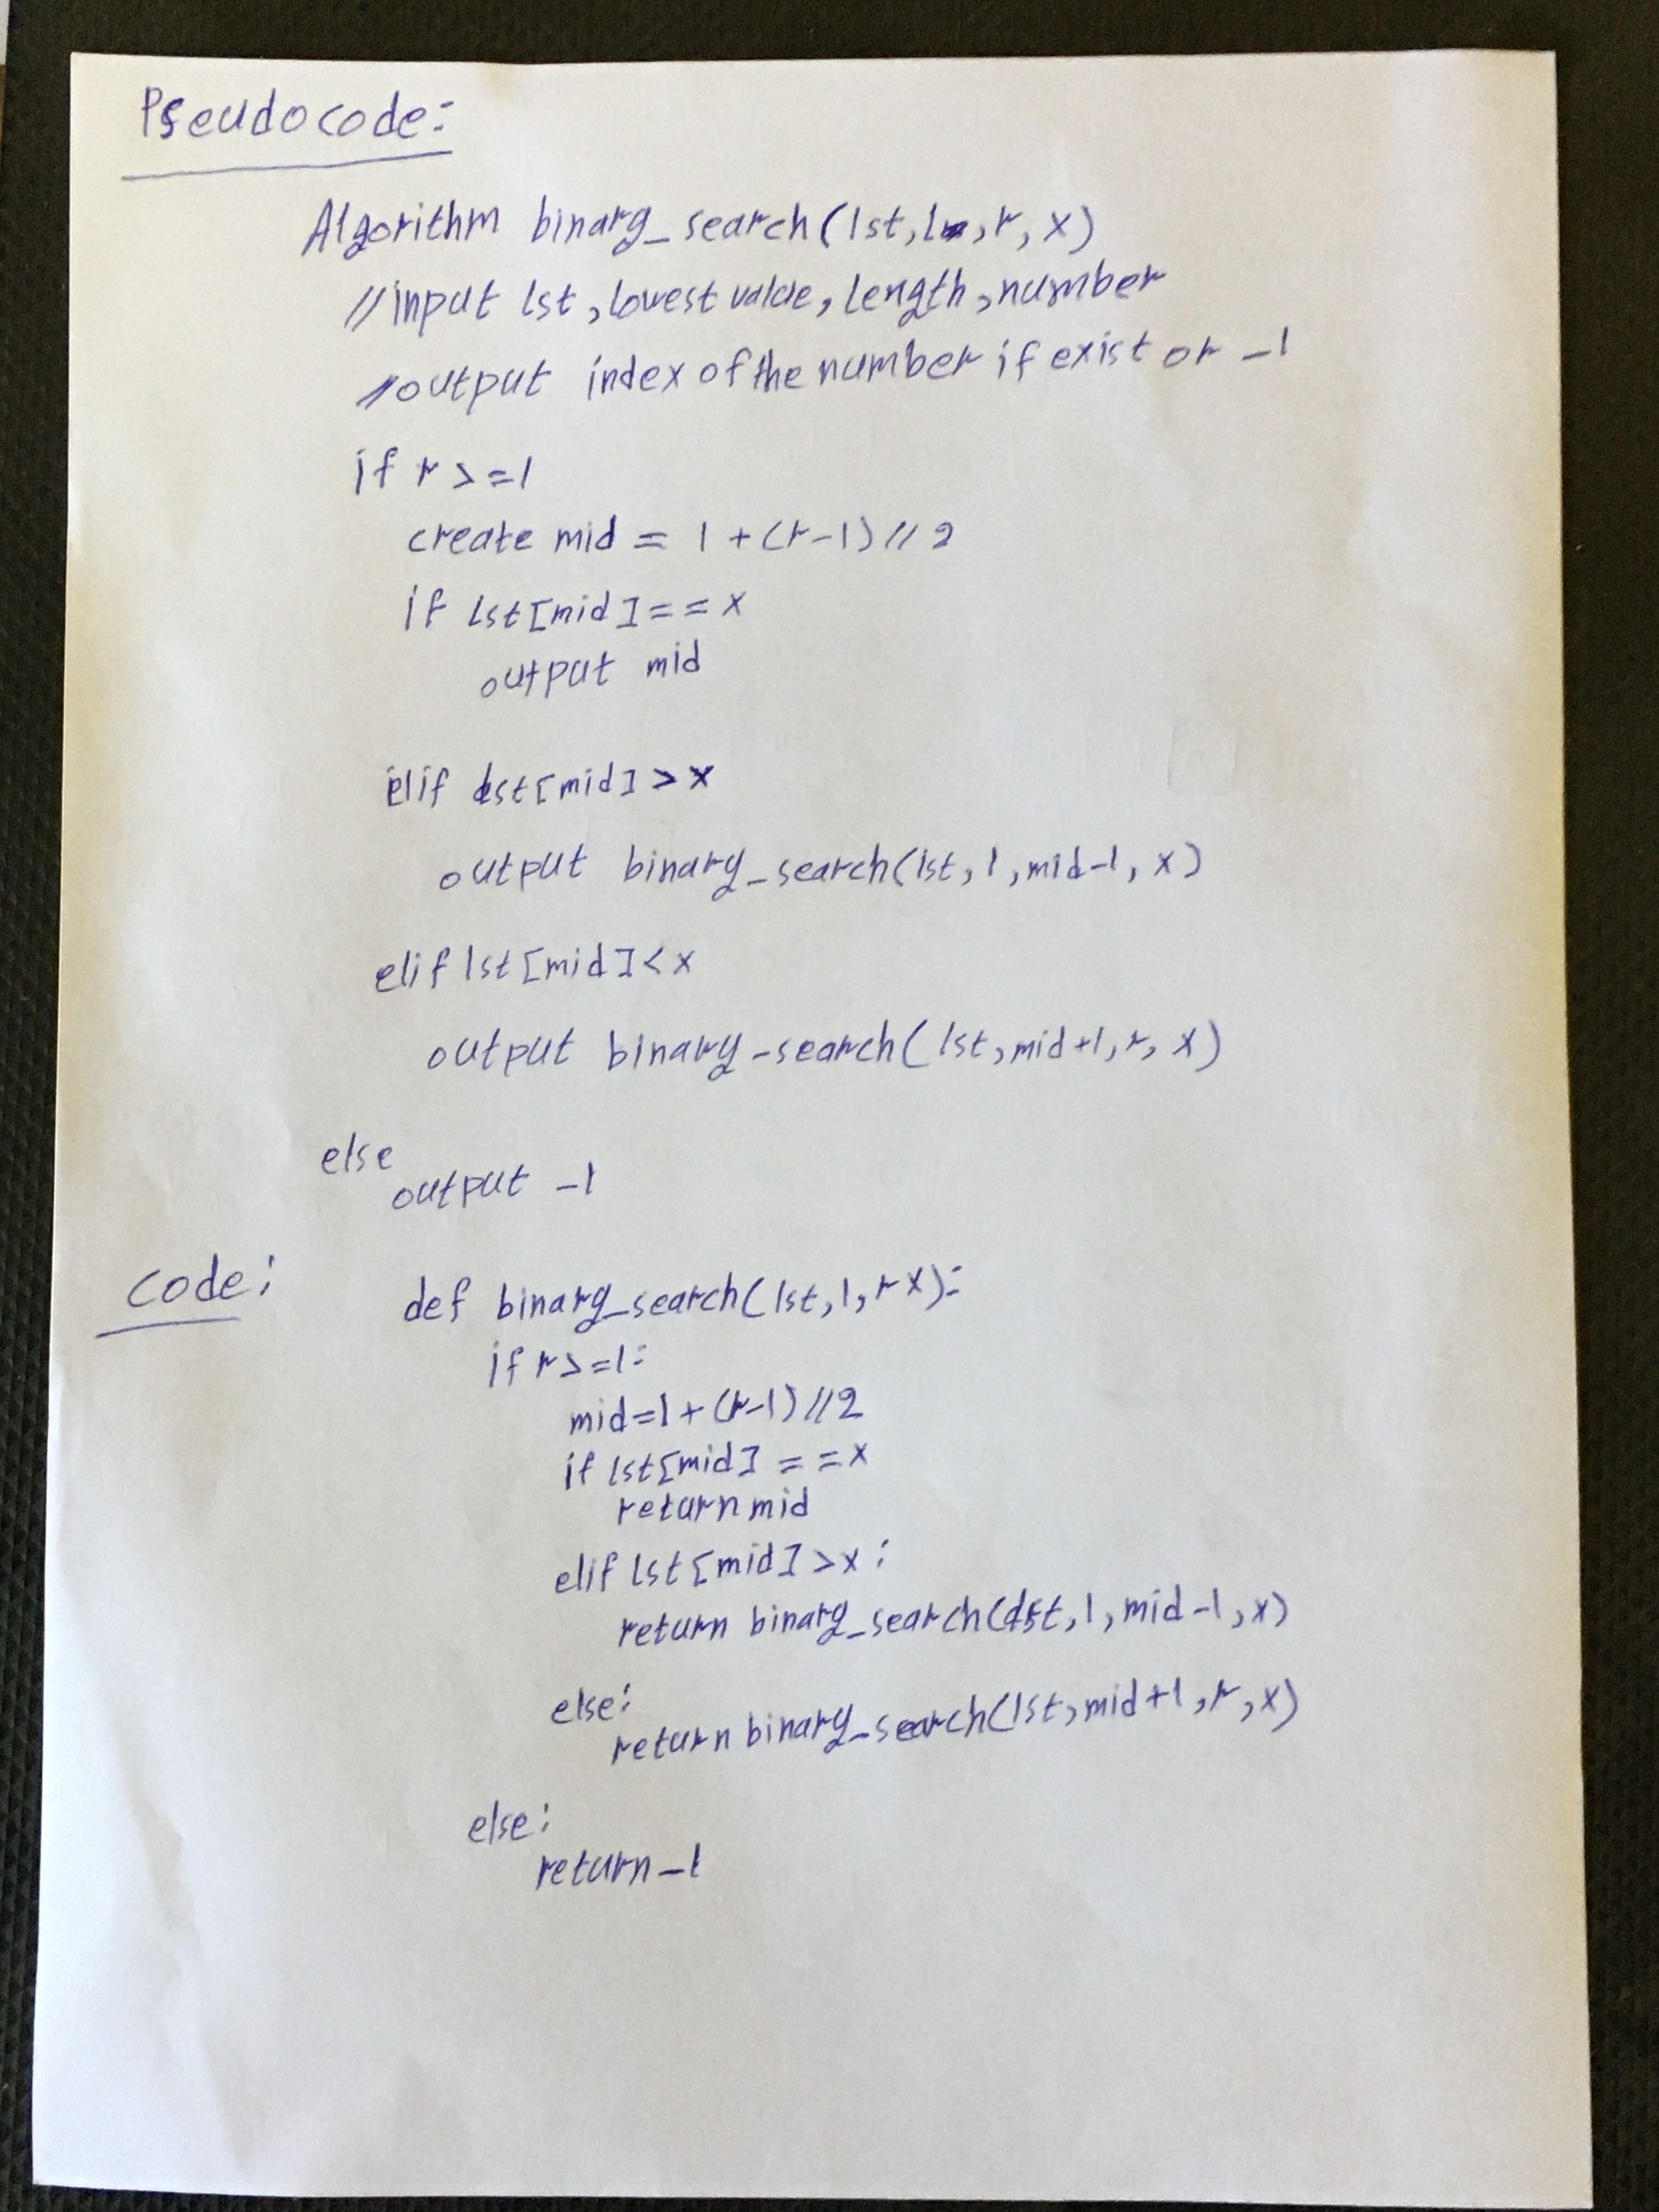 Pseudocode:
Algorithm binary_search(lst, l, r, x)
//input lst, lowest value, length, number
//output index of the number if exist or -1
if r >= l
create mid = l + (r-l) // 2
if lst[mid] == x
output mid
elif lst[mid] > x
output binary_search(lst, l, mid-1, x)
elif lst[mid] < x
output binary-search(lst, mid+1, r, x)
else
output -1
Code:
def binary_search(lst, l, r x):
if r >= l:
mid = l + (r-l) // 2
if lst[mid] == x
return mid
elif lst[mid] > x:
return binary_search(dst, l, mid-1, x)
else:
return binary_search(lst, mid+1, r, x)
else:
return -1